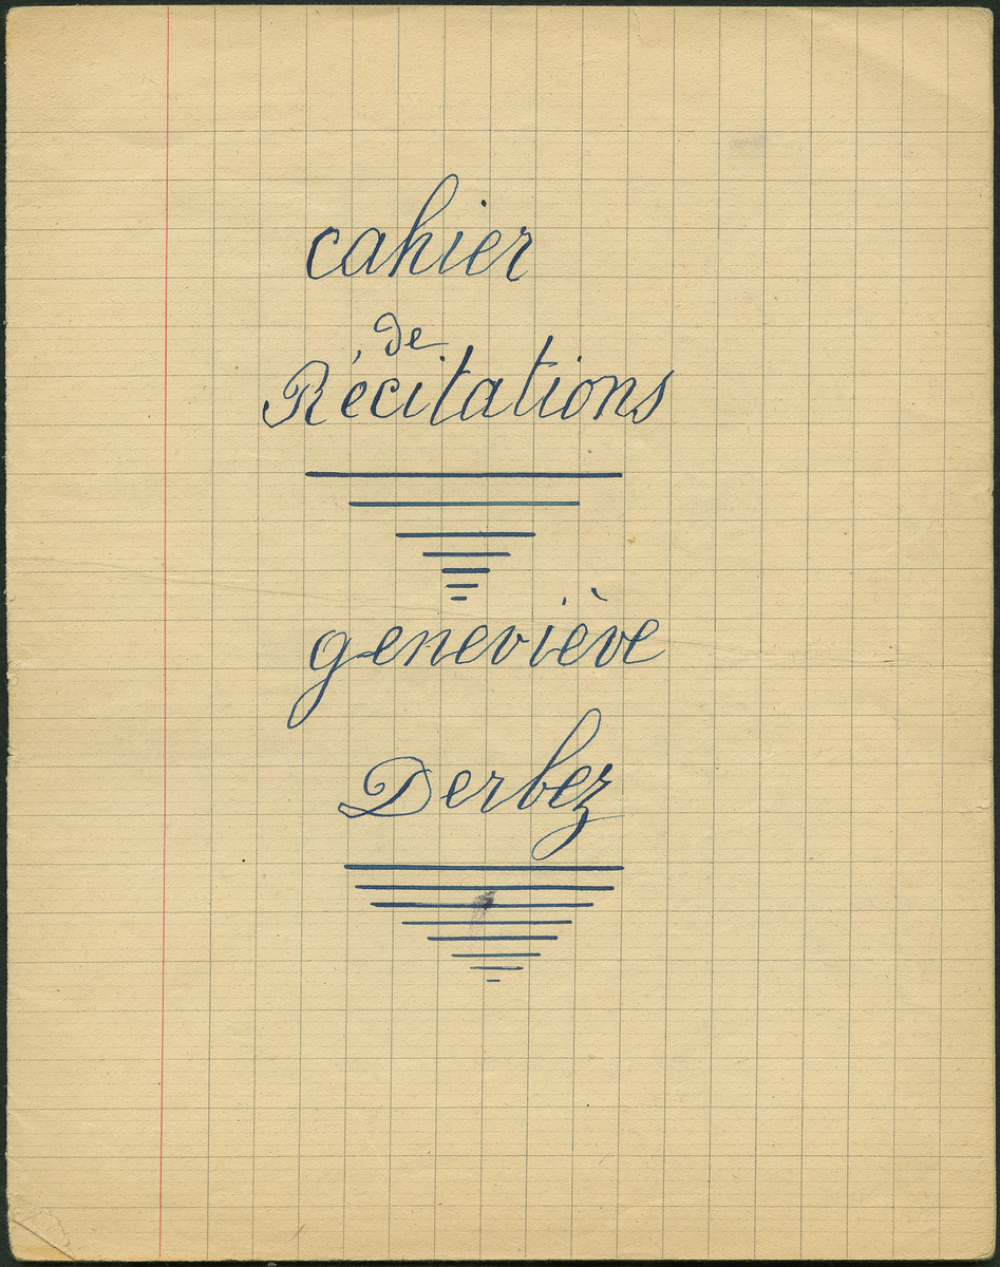 cahier
de
Récitations
geneviève
Derbez